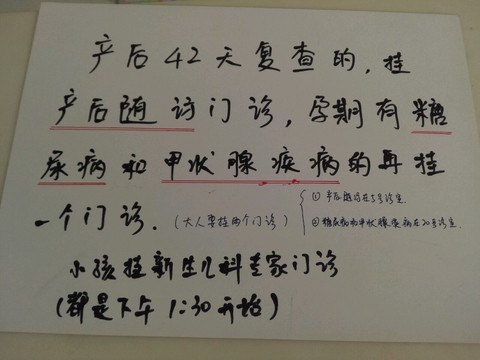 产后42天复查的，挂
产后随访门诊，孕期有糖
尿病和甲状腺疾病的再挂
一个门诊．（大人要挂两个门诊）
①产后随访在5号诊室
②糖尿病和甲状腺疾病在20号诊室
小孩挂新生儿科专家门诊
（都是下午1:30开始）